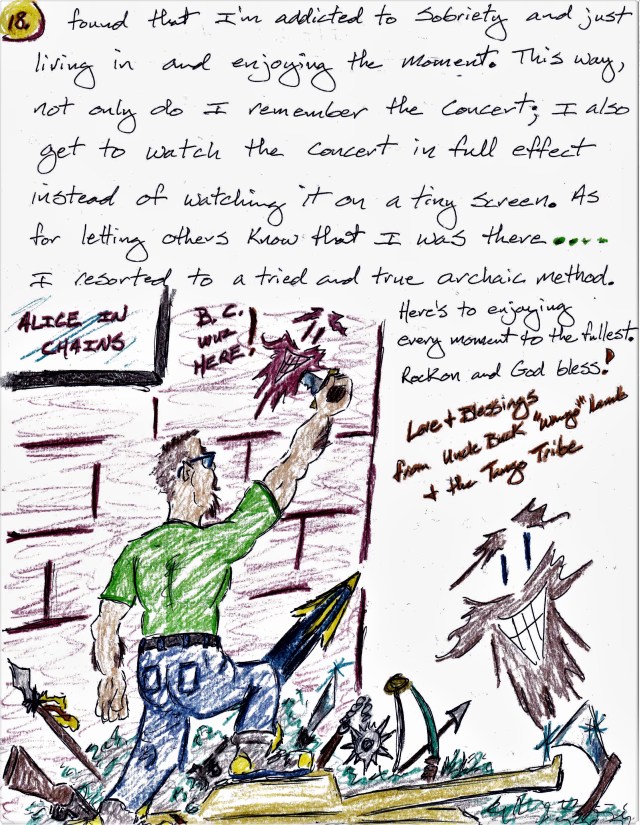 18.
found that I'm addicted to Sobriety and just
living in and enjoying the moment. This way,
not only do I remember the concert; I also
get to watch the concert in full effect
instead of watching it on a tiny screen. As
for letting others know that I was there ....
I resorted to a tried and true archaic method.
Here's to enjoying
every moment to the fullest.
Rock on and God bless!
Love + Blessings
from Uncle Buck
+ the Tango Tribe
ALICE IN
CHAINS
B.C.
wuz
HERE!